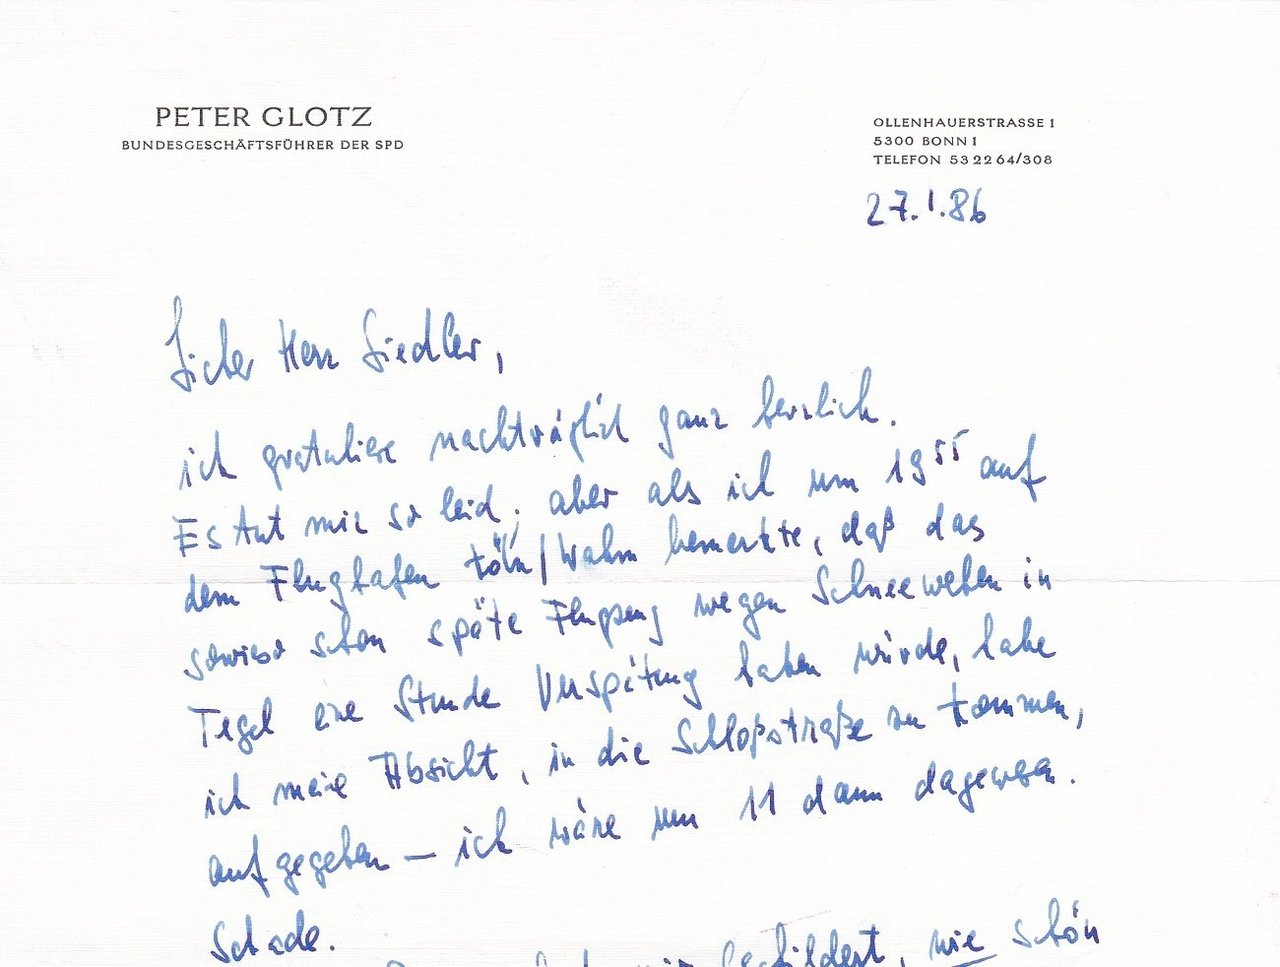 PETER GLOTZ
BUNDESGESCHÄFTSFÜHRER DER SPD
OLLENHAUERSTRASSE 1
5300 BONN 1
TELEFON 53 22 64/308
27.1.86
Lieber Herr Siedler,
ich gratuliere nachträglich ganz herzlich.
Es tut mir so leid; aber als ich um 19⁵⁵ auf
dem Flughafen Köln/Wahn bemerkte, daß das
sowieso schon späte Flugzeug wegen Schneewehen in
Tegel eine Stunde Verspätung haben würde, habe
ich meine Absicht, in die Schloßstraße zu kommen,
aufgegeben – ich wäre um 11 dann dagewesen.
Schade.
mir geschildert, wie schön